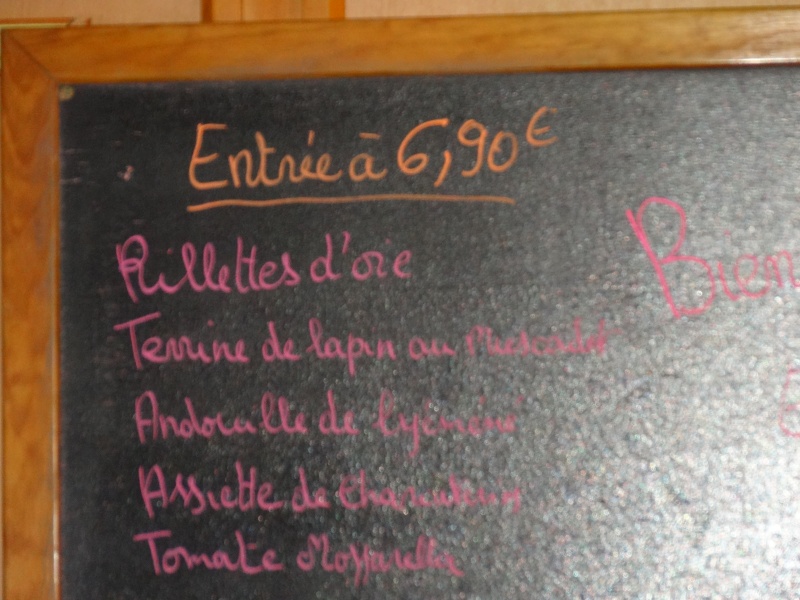 Entrée à 6,90€
Rillettes d'oie
Terrine de lapin au Muscadet
Andouille de
Assiette de charcuterie
Tomate Mozzarella
Bien